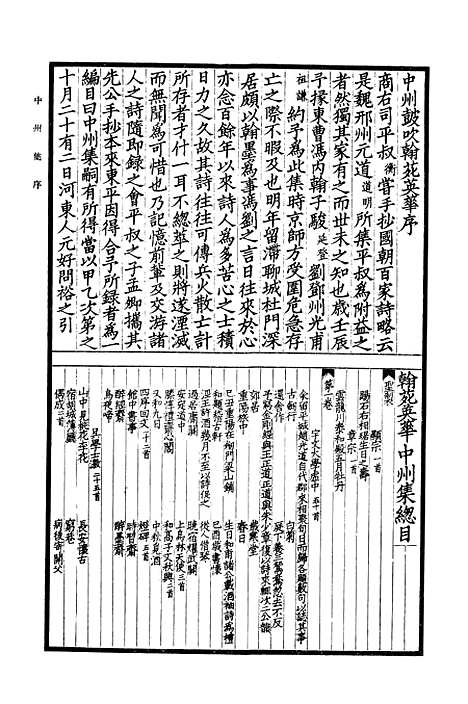 中州鼓吹翰苑英華序
商右司平叔衡嘗手抄國朝百家詩略云
是魏邢州元道道明所集平叔為附益之
者然獨其家有之而世未之知也歲壬辰
予掾東曹馮内翰子駿延登劉鄧州光甫
祖謙約予為此集時京師方受圍危急存
亡之際不暇及也明年留滯聊城杜門深
居頗以翰墨為事馮劉之言日往來於心
亦念百餘年以來詩人為多苦心之士積
日力之久故其詩往往可傳兵火散亡計
所存者才什一耳不總萃之則將遂湮滅
而無聞為可惜也乃記憶前輩及交游諸
人之詩隨即錄之會平叔之子孟卿攜其
先公手抄本來東平因得合予所錄者為一
編目曰中州集嗣有所得當以甲乙次第之
十月二十有二日河東人元好問裕之引
中州集序
翰苑英華中州集總目
聖製
顯宗一首
賜石右相琚生日之壽
章宗一首
雲龍川泰和殿五月牡丹
第一卷
宇文大學虛中五十首
古劍行
還舍作
郊居
重陽旅中
安定道中
又和九日
四序回文十二首
館中書事
醉經齋
烏夜啼
山中見桃花李花
偶成二首
白菊
春日
己酉歲書懷
從人借琴
上烏林天使三首
和高子文秋興二首
中秋覓酒
燈碑五首
時習齋
醉墨齋
長安懷古
窮巷
病後寄闕父